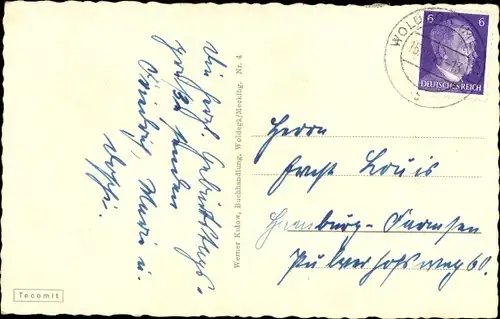 Die herzl. Geburtstags-
grüße senden
Friedrich, Marie u.
Werner Kulow, Buchhandlung, Woldegk/Mecklbg. Nr. 4
Tecomit
WOLDEGK
6 6
DEUTSCHES REICH
Herrn
Ernst Louis
Hamburg-Farmsen
Pulverhofsweg 60.